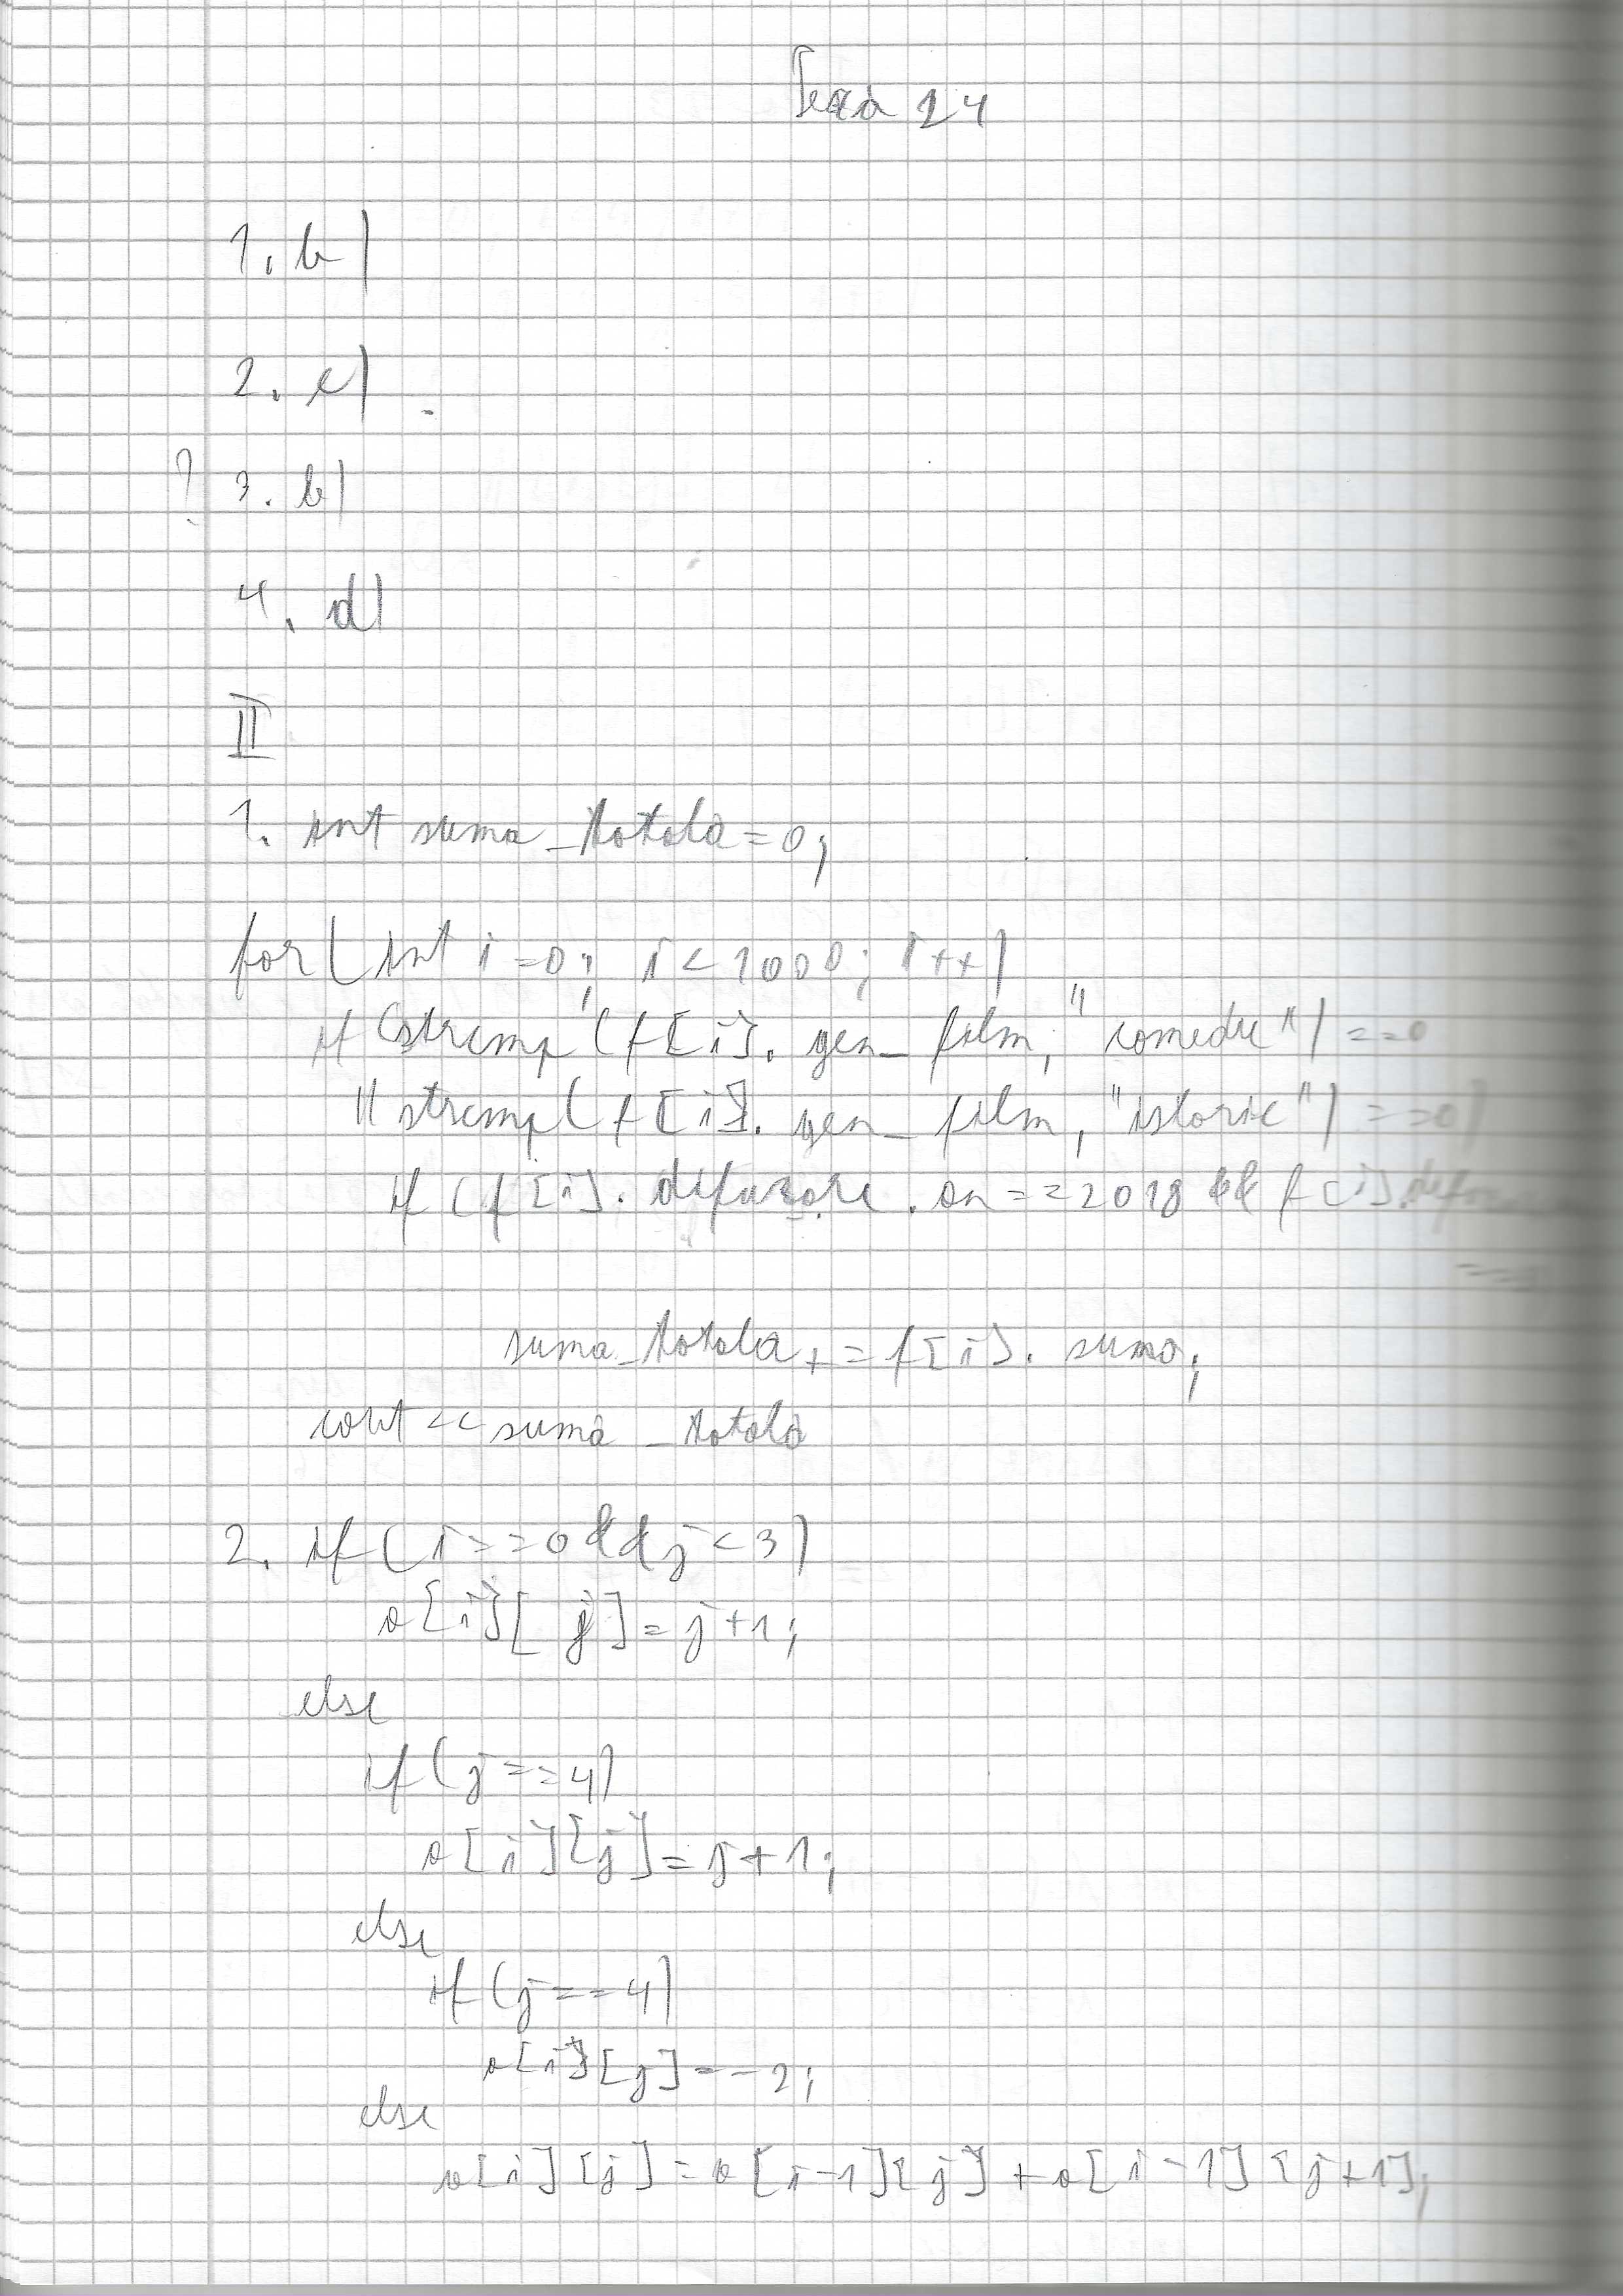 Temă 24
1. b)
2. c)
? 3. b)
4. d)
II
1. int suma_totala=0;
for(int i=0; i<1000; i++)
if (strcmp(f[i].gen_film, "comedie") ==0
|| strcmp(f[i].gen_film, "istoric") ==0)
if (f[i].difuzare.an==2018 && f[i].
suma_totala+=f[i].suma;
cout<<suma_totala
2. if(i==0&&j<3)
a[i][j]=j+1;
else
if(j==4)
a[i][j]=j+1;
else
if(j==4)
a[i][j]=-2;
else
a[i][j]=a[i-1][j]+a[i-1][j+1];